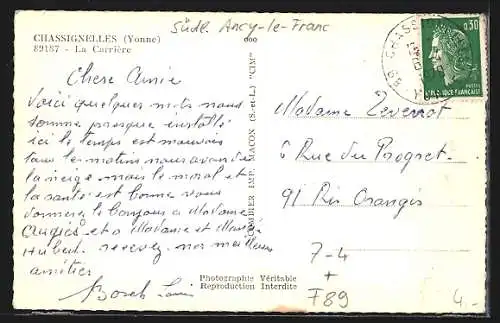 CHASSIGNELLES (Yonne)
89187 - La Carrière
Südl. Ancy-le-Franc
Chere Amie
Voici quelques mots nous
somme presque installé
ici le temps est mauvais
tous les matins nous avons de
la neige mais le moral et
la santé est bonne vous
donnerez le bonjour a Madame
et a Madame et
recevez nos meilleurs
amitiés
Louis
COMBIER IMP. MACON (S.-et-L.) "CIM"
Photographie Véritable
Reproduction Interdite
0,30
POSTES
REPUBLIQUE FRANÇAISE
Madame
6 Rue du Progret
91 Ris Orangis
7-4
+
F89
4.-